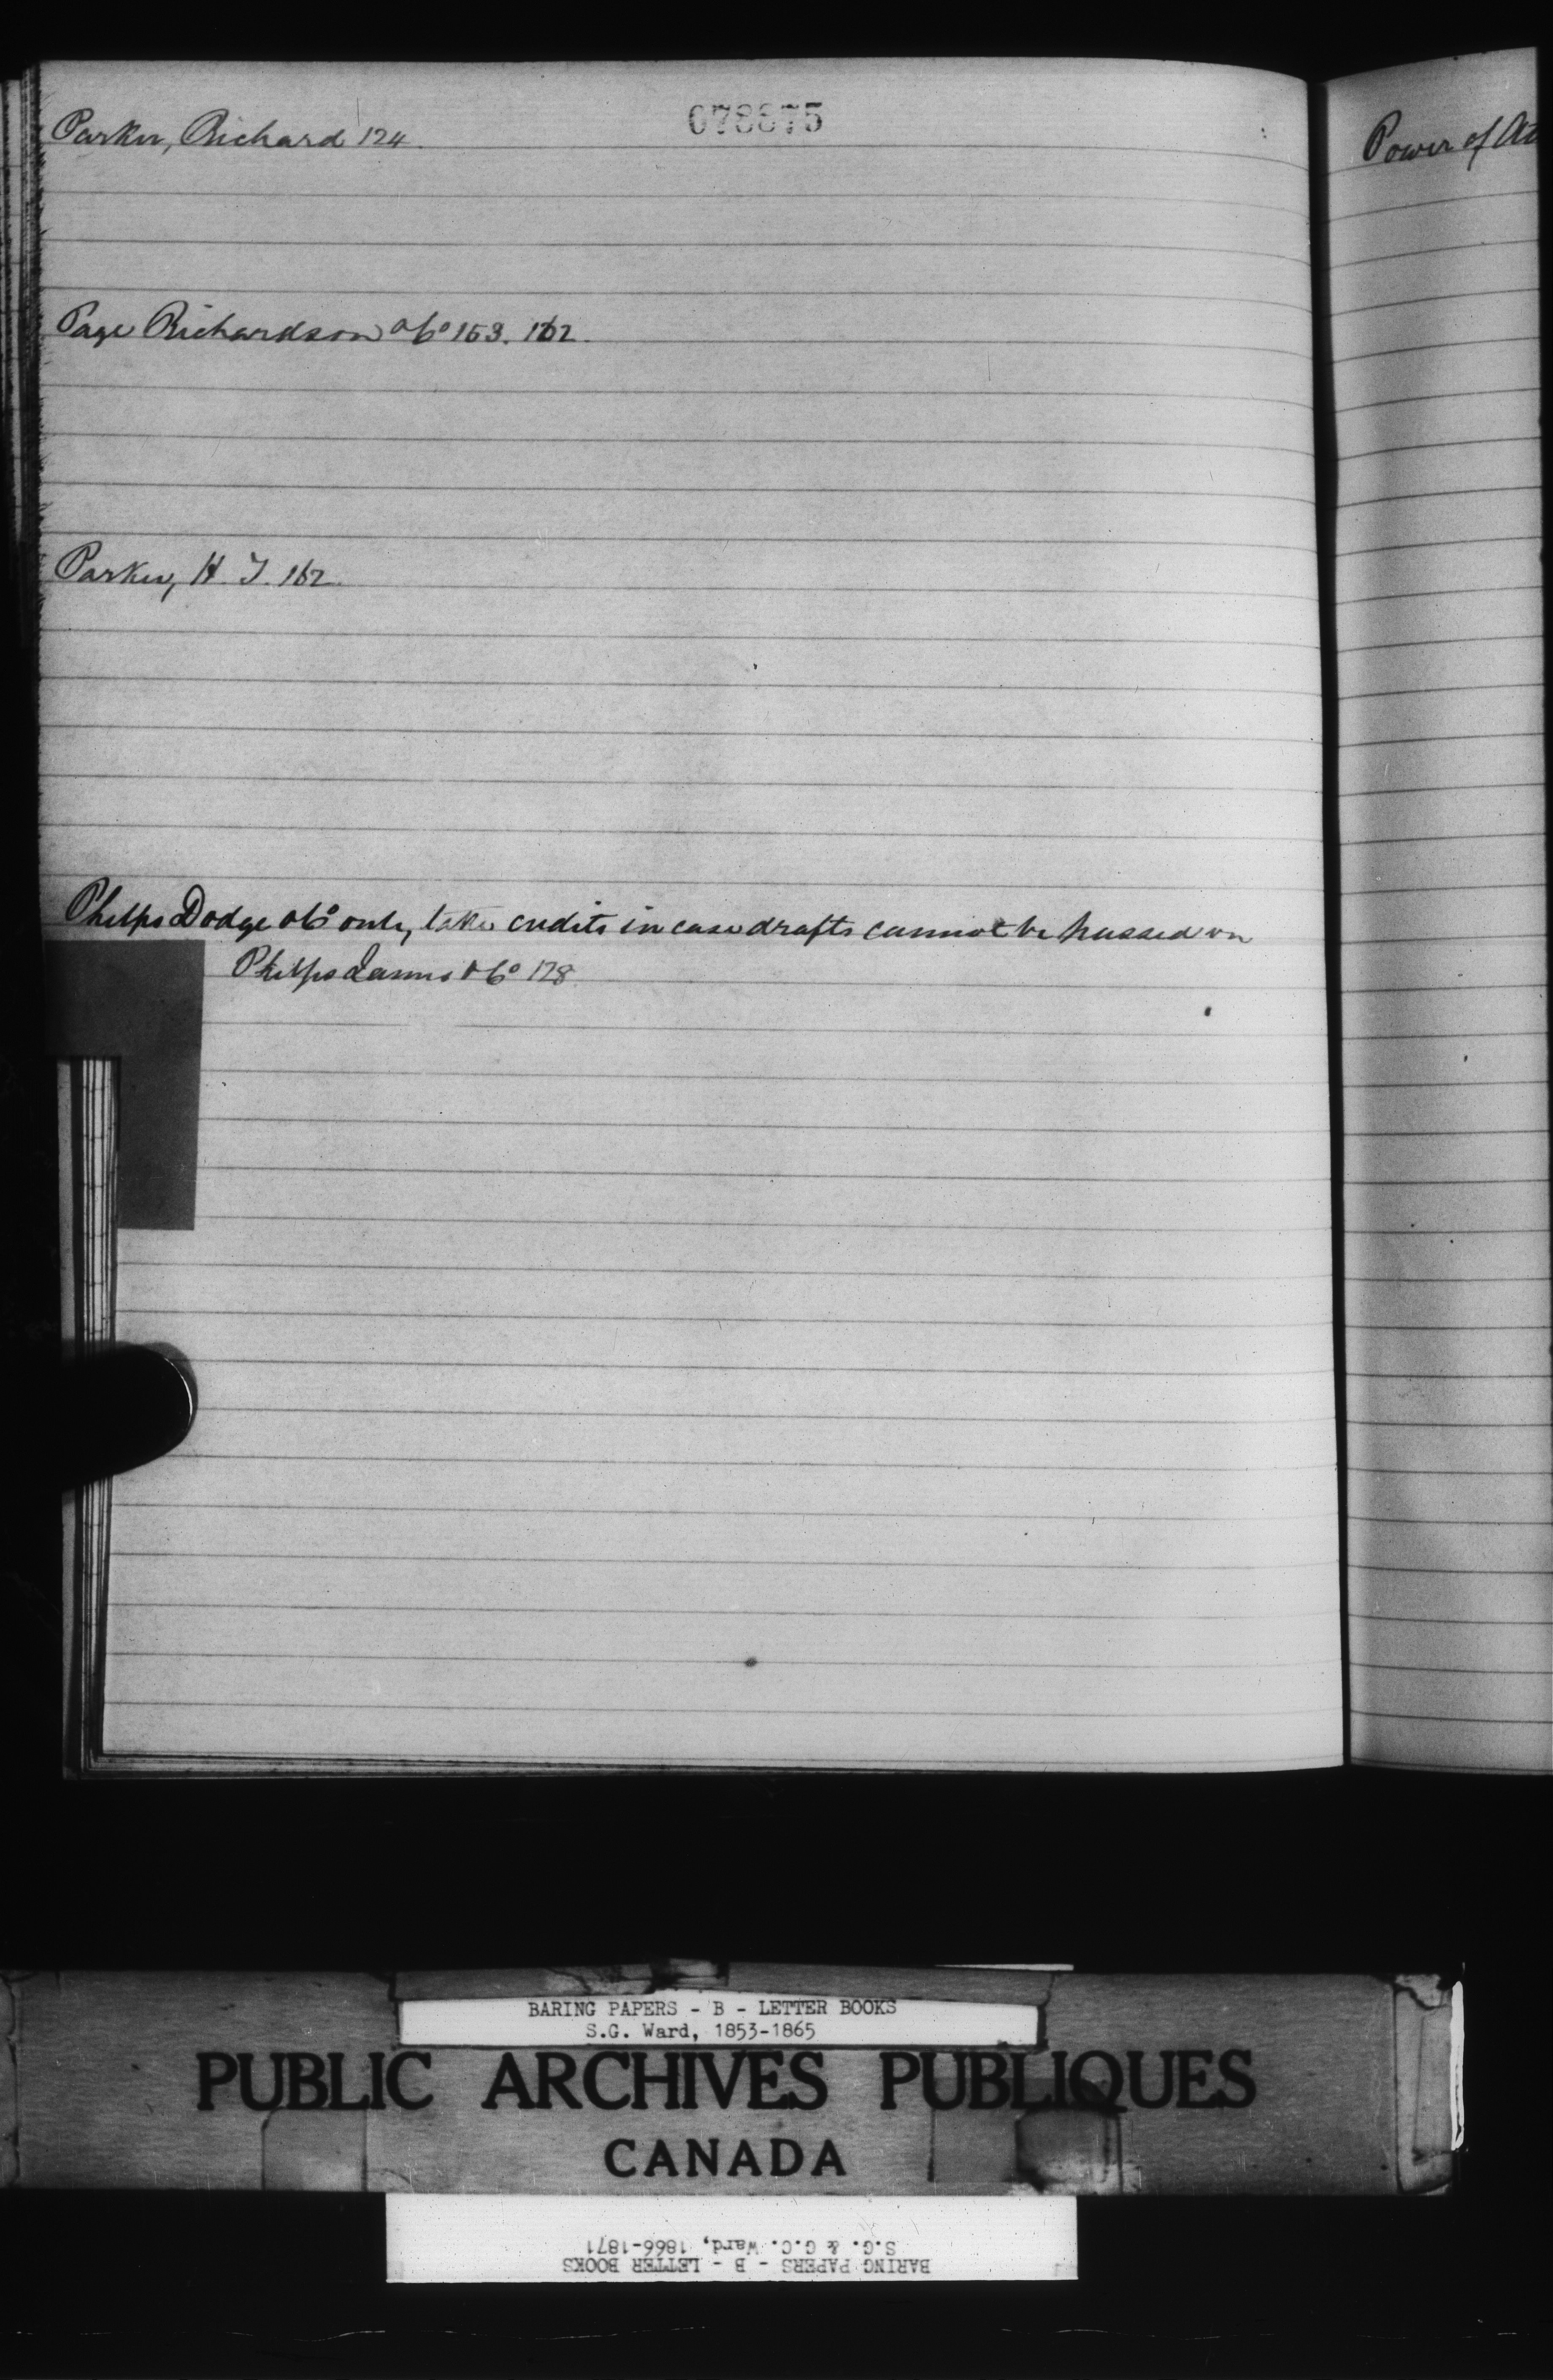 078875
Parker, Richard 124.
Page Richardson & Co 153. 162.
Parker, H. T. 162.
Phelps Dodge & Co only, take credits in case drafts cannot be passed on
Phelps James & Co 178
Power of At
BARING PAPERS - B - LETTER BOOKS
S.G. Ward, 1853-1865
PUBLIC ARCHIVES PUBLIQUES
CANADA
BARING PAPERS - B - LETTER BOOKS
S.G. & G.C. Ward, 1866-1871